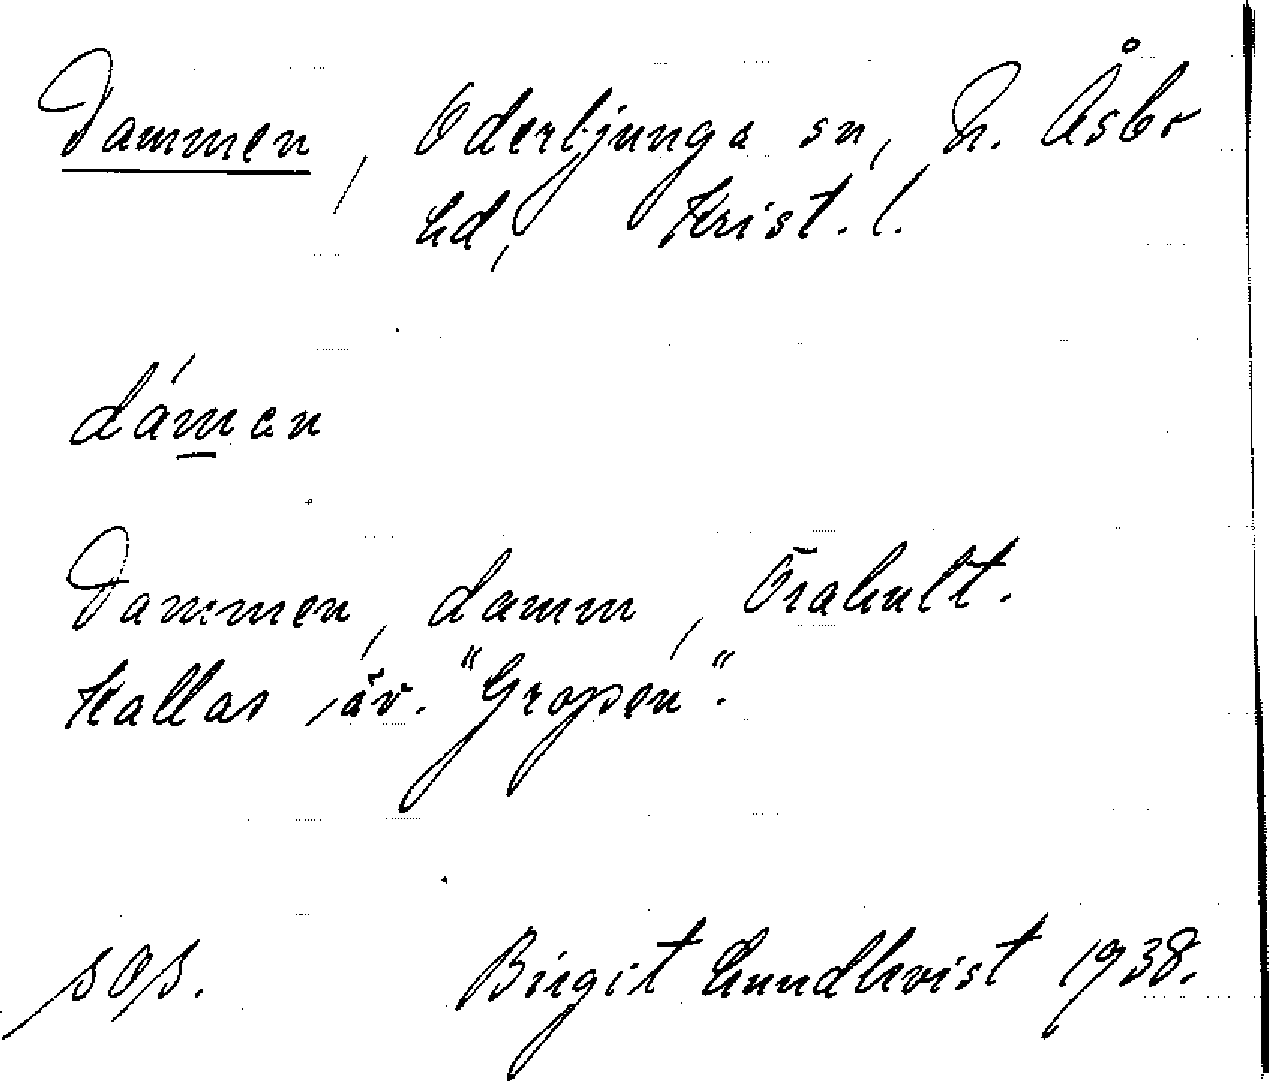 Dammen, Oderljunga sn, N. Åsbo
hd, Krist. l.
dámen
Dammen, damm, Örahult.
Kallas äv. "Gropen".
sÖs.
Birgit Lundkvist 1938.